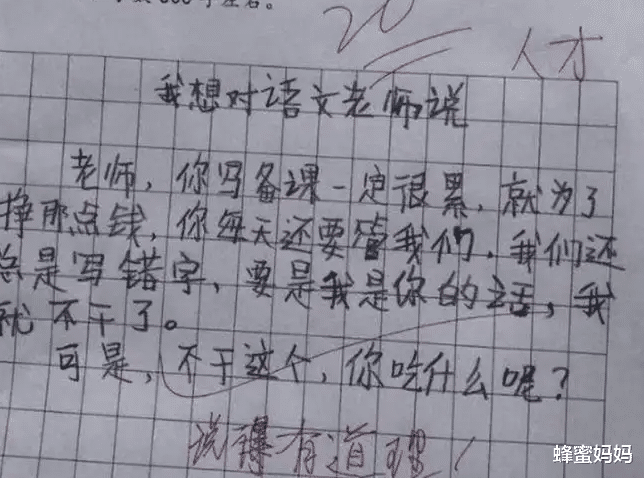 20 人才
我想对语文老师说
老师，你写备课一定很累，就为了
挣那点钱，你每天还要管我们，我们还
总是写错字，要是我是你的话，我
就不干了。
可是，不干这个，你吃什么呢？
说得有道理！
蜂蜜妈妈